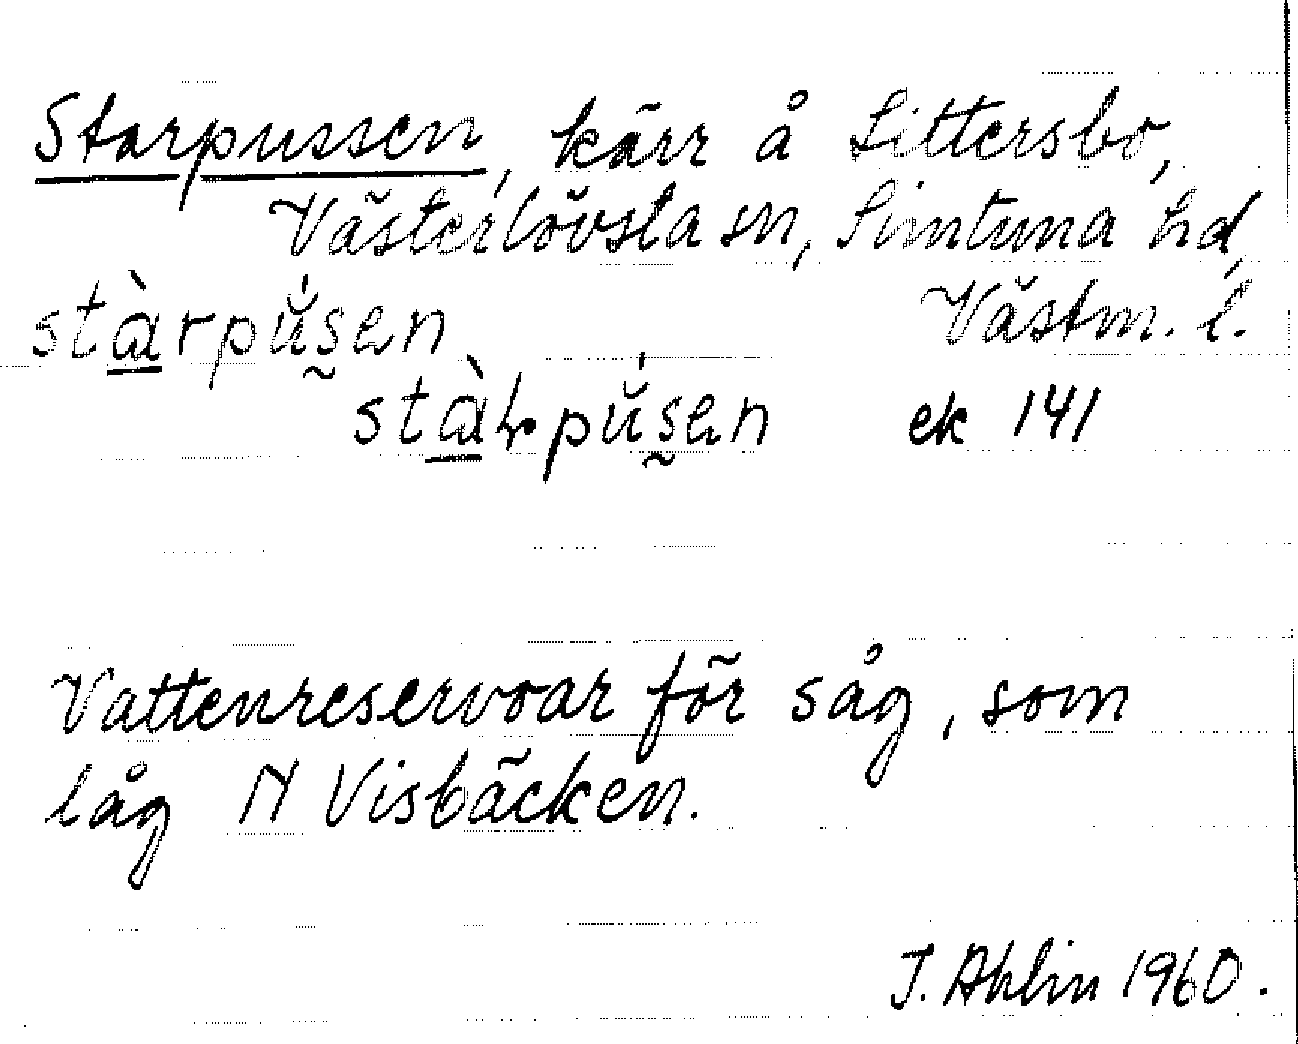 Starpussen, kärr å Sittersbo,
Västerlövsta sn, Simtuna hd,
stàrpŭ́s̰en Västm. l.
stàrpŭ́s̰en ek 141
Vattenreservoar för såg, som
låg N Visbäcken.
J. Ahlin 1960.